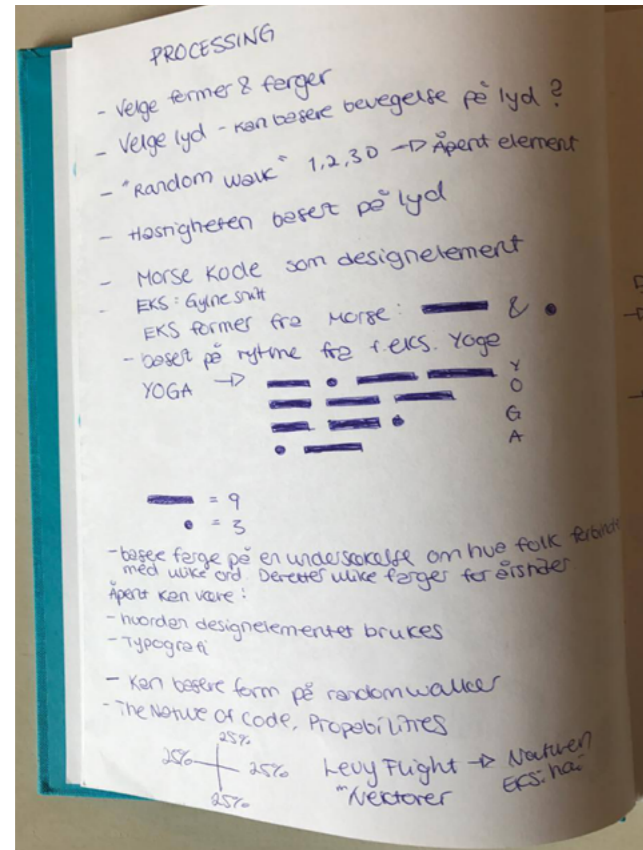 PROCESSING
- Velge former & farger
- Velge lyd - kan basere bevegelse på lyd?
- "Random walk" 1,2,3D → Åpent element
- Hastigheten basert på lyd
- Morse kode som designelement
- EKS: Gylne snitt
EKS former fra Morse: — & •
- basert på rytme fra f.eks. Yoga
YOGA → — • — — Y
— — — O
— — • G
• — A
— = 9
• = 3
- basere farge på en undersøkelse om hva folk forbinder
med ulike ord. Deretter ulike farger for årstider
Åpent kan være:
- hvordan designelementet brukes
- Typografi
- Kan basere form på randomwalker
- The Nature of Code. Propabilitres
25%
25% 25%
25%
Levy Flight → Naturen
Vektorer EKS: hai